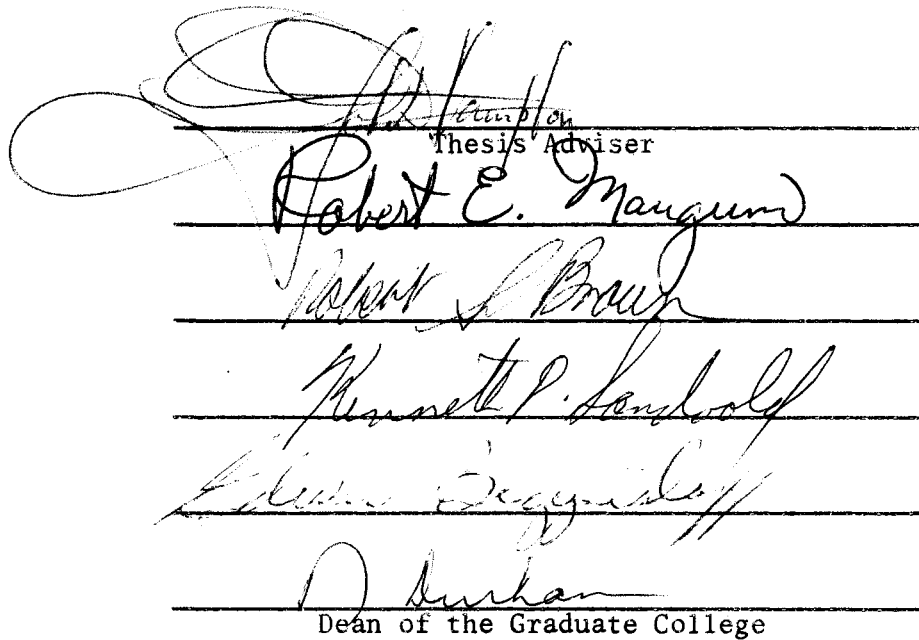 John Hampton
Thesis Adviser
Robert E. Mangum
Robert S Brown
Kenneth P. Sandvold
N Durham
Dean of the Graduate College